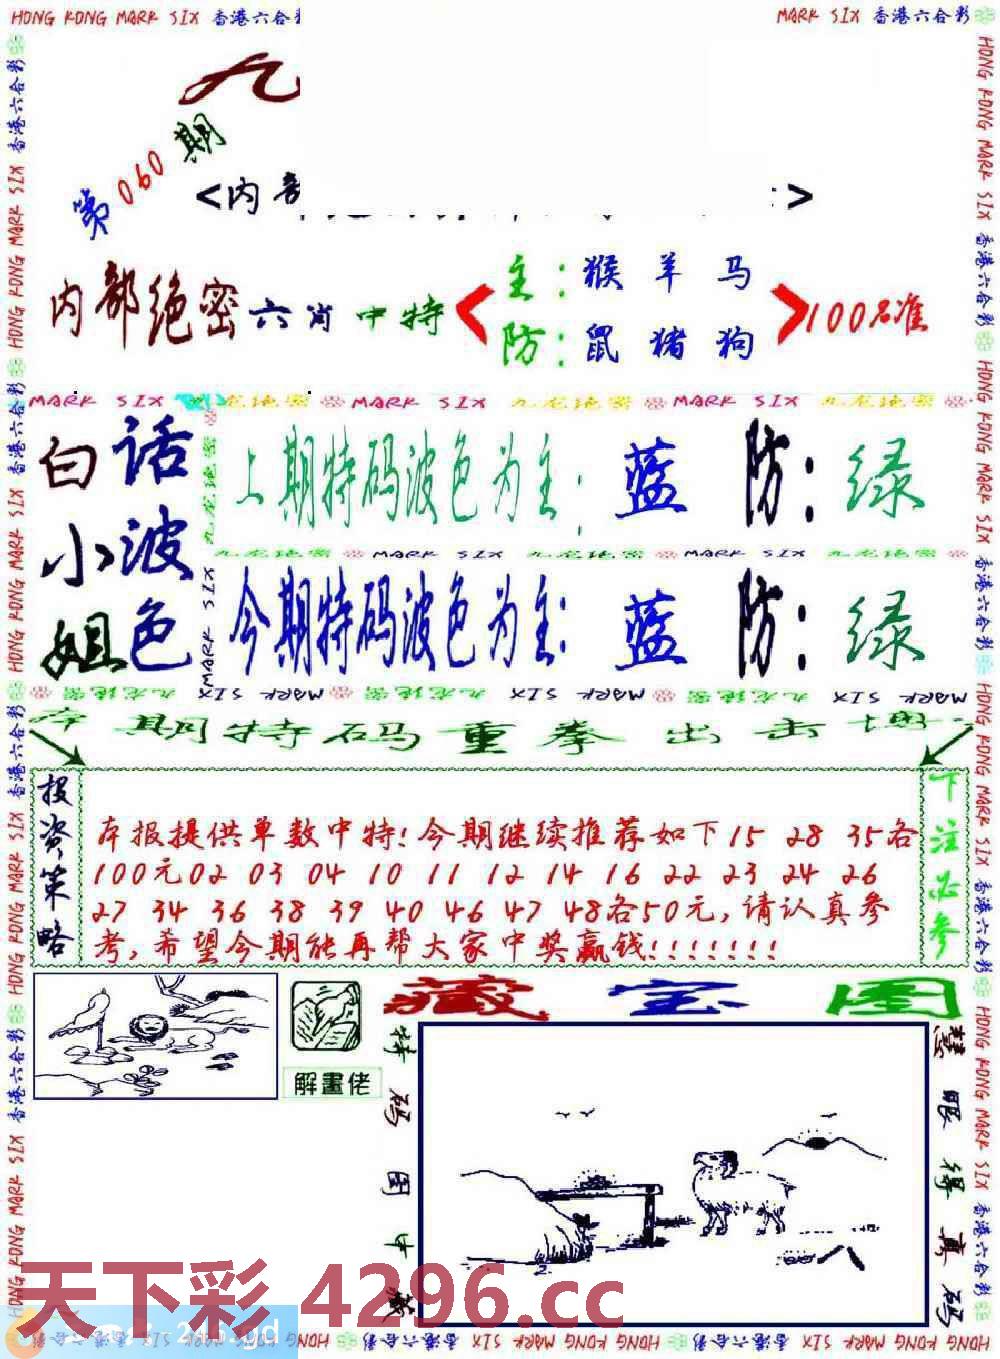 HONG KONG MARK SIX 香港六合彩
MARK SIX 香港六合彩
九
第060期
<内部
>
内部绝密六肖中特
主:猴羊马
防:鼠猪狗
100%准
MARK SIX 九龙绝密 MARK SIX 九龙绝密 MARK SIX 九龙绝密
白小姐
话波色
上期特码波色为主:蓝 防:绿
九龙绝密 MARK SIX 九龙绝密 MARK SIX 九龙绝密
今期特码波色为主:蓝 防:绿
本期特码重拳出击
投资策略
本报提供单数中特!今期继续推荐如下15 28 35各
100元02 03 04 10 11 12 14 16 22 23 24 26
27 34 36 38 39 40 46 47 48各50元,请认真参
考,希望今期能再帮大家中奖赢钱!!!!!!!
下注必参
藏宝图
解畫佬
特码图中藏
慧眼得真码
天下彩 4296.cc
246.gd
HONG KONG MARK SIX 香港六合彩